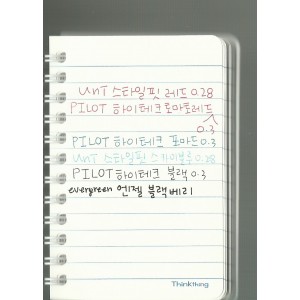 UNI 스타일핏 레드 0.28
PILOT 하이테크 토마토레드
0.3
PILOT 하이테크 포마드 0.3
UNI 스타일핏 스카이블루 0.28
PILOT 하이테크 블랙 0.3
evergreen 엔젤 블랙베리
Thinkthing